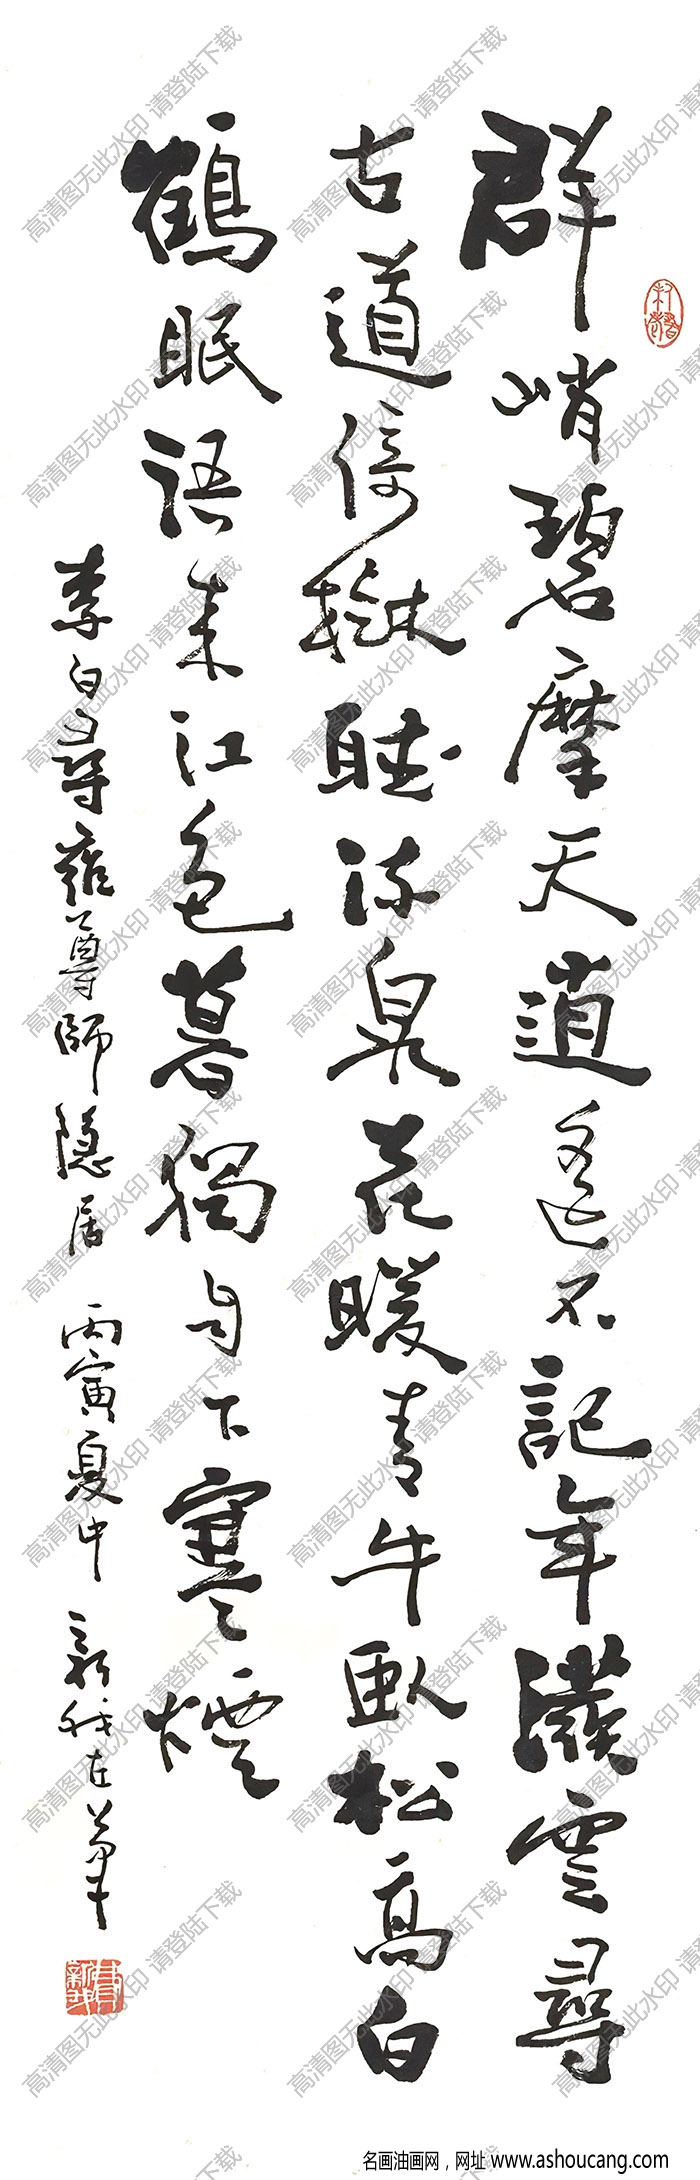 群峭碧摩天逍遥不記年撥雲尋
古道倚樹聴流泉花暖青牛臥松高白
鶴眠語来江色暮独自下寒煙
李白尋雍尊師隐居 丙寅夏中 新我左筆
高清图无此水印 请登陆下载
名画油画网，网址 www.ashoucang.com